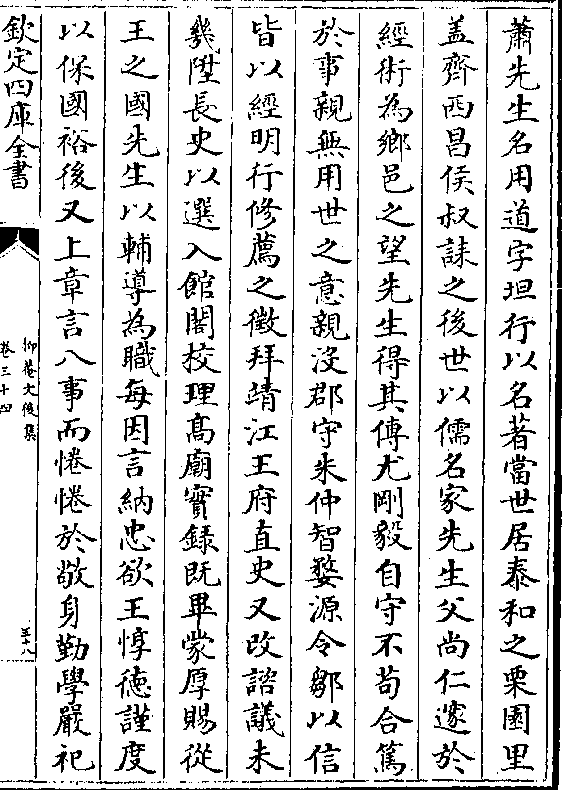 蕭先生名用道字坦行以名著當世居泰和之栗園里
盖齊西昌侯叔誄之後世以儒名家先生父尚仁邃於
經術為鄉邑之望先生得其傳尤剛毅自守不苟合篤
於事親無用世之意親沒郡守朱仲智婺源令鄒以信
皆以經明行修薦之徵拜靖江王府直史又改諮議未
幾陞長史以選入館閣校理髙廟實録既畢蒙厚賜從
王之國先生以輔導為職每因言納忠欲王惇徳謹度
以保國裕後又上章言八事而惓惓於敬身勤學嚴祀
欽定四庫全書
抑菴文後集
卷三十四